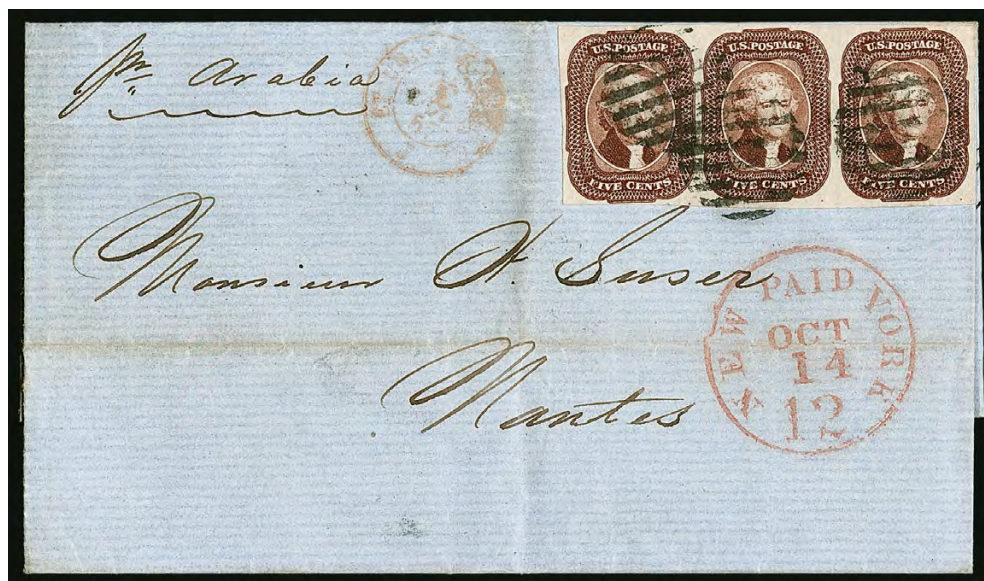 pr Arabia
U.S. POSTAGE
FIVE CENTS
U.S. POSTAGE
FIVE CENTS
U.S. POSTAGE
FIVE CENTS
Monsieur H. Suser
Nantes
NEW PAID YORK
OCT
14
12